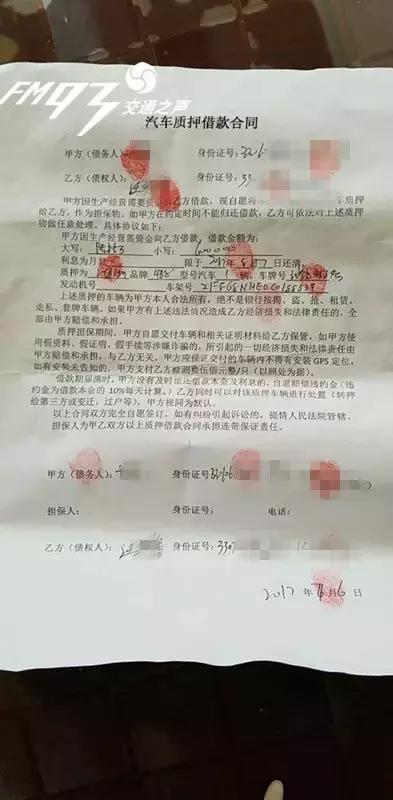 FM93
交通之声
汽车质押借款合同
甲方（债务人）： 身份证号：
乙方（债权人）： 身份证号：33
甲方因生产经营需要 乙方借款，现自愿将 车质押
给乙方，作为担保物。如甲方在约定时间不能归还借款，乙方可依法对上述质押
物做任意处理。具体协议如下：
甲方因生产经营需资金向乙方借款 借款金额为：
大写： 小写：
利息为月 限于2017年 日还清
质押为 品牌 型号汽车 辆，车牌号
发动机号 车架号
上述质押的车辆为甲方本人合法所有，绝不是银行按揭、盗、抢、租赁、
走私、套牌车辆，如果甲方有上述违法情况造成乙方经济损失和法律责任的，全
部由甲方赔偿和承担。
质押担保期间，甲方自愿交付车辆和相关证明材料给乙方保管，如甲方使
用假资料、假证明、假手续等涉嫌诈骗的，所引起的一切经济损失和法律责任由
甲方赔偿和承担，与乙方无关。甲方应保证交付的车辆内不得有安装 GPS 定位，
如有安装未告知的，甲方支付乙方检测费伍佰元整/只（以照处为据）。
借款期届满时，甲方没有及时偿还借款本金及利息的，自愿赔偿违约金（违
约金为借款本金的 10%每天计算。）乙方同时可以对该质押车辆进行处置（转押
给第三方或变迁、过户等），甲方视同为默认。
以上合同双方完全自愿签订，如有纠纷引起诉讼的，提请人民法院管辖。
担保人为甲乙双方以上质押借款合同承担连带保证责任。
甲方（债务人）： 身份证号
担保人： 身份证号： 电话：
乙方（债权人）： 身份证号：330
2017 年 月6 日